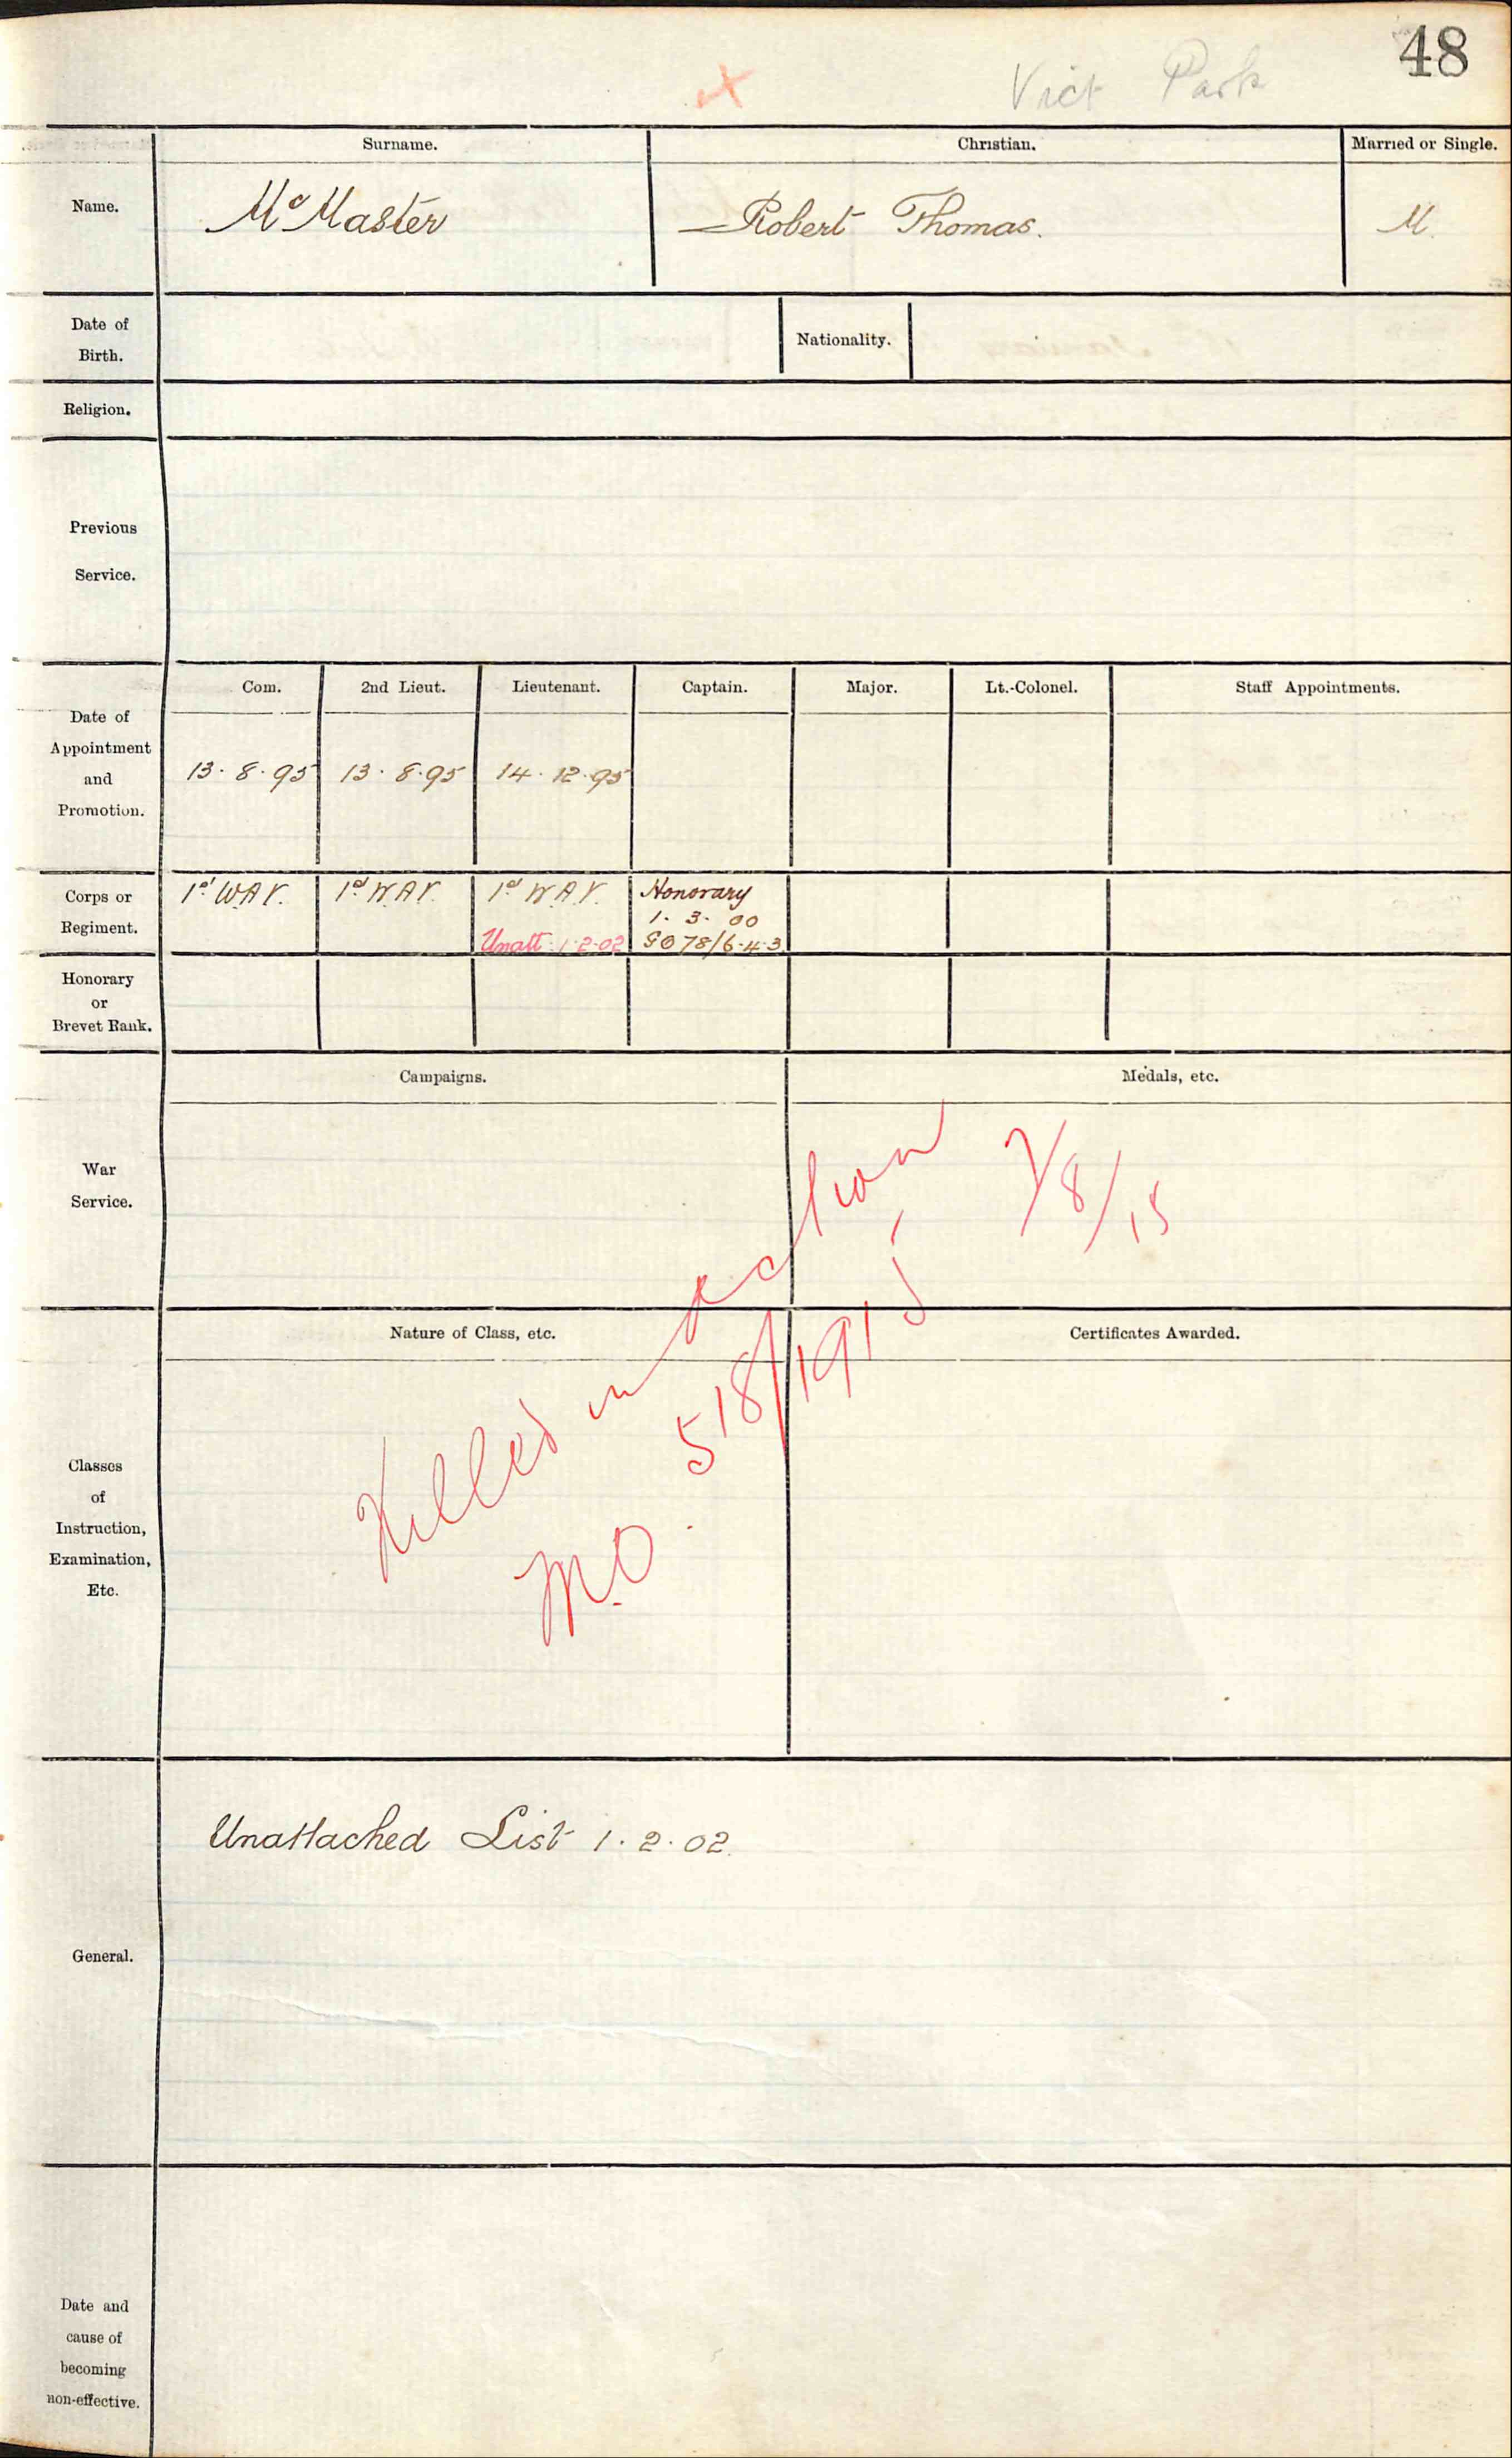 48
Vict Park
Surname. Christian. Married or Single.
Name. McMaster Robert Thomas. M.
Date of
Birth.
Nationality.
Religion.
Previous
Service.
Com. 2nd Lieut. Lieutenant. Captain. Major. Lt.-Colonel. Staff Appointments.
Date of
Appointment
and
Promotion.
13.8.95 13.8.95 14.12.95
Corps or
Regiment.
1st W.A.V. 1st W.A.V. 1st W.A.V. Honorary
1.3.00
Unatt 1.2.02 GO 78/6.4.3
Honorary
or
Brevet Rank.
Campaigns. Medals, etc.
War
Service.
Killed in action 7/8/15
M.O. 518/1915
Nature of Class, etc. Certificates Awarded.
Classes
of
Instruction,
Examination,
Etc.
Unattached List 1.2.02.
General.
Date and
cause of
becoming
non-effective.